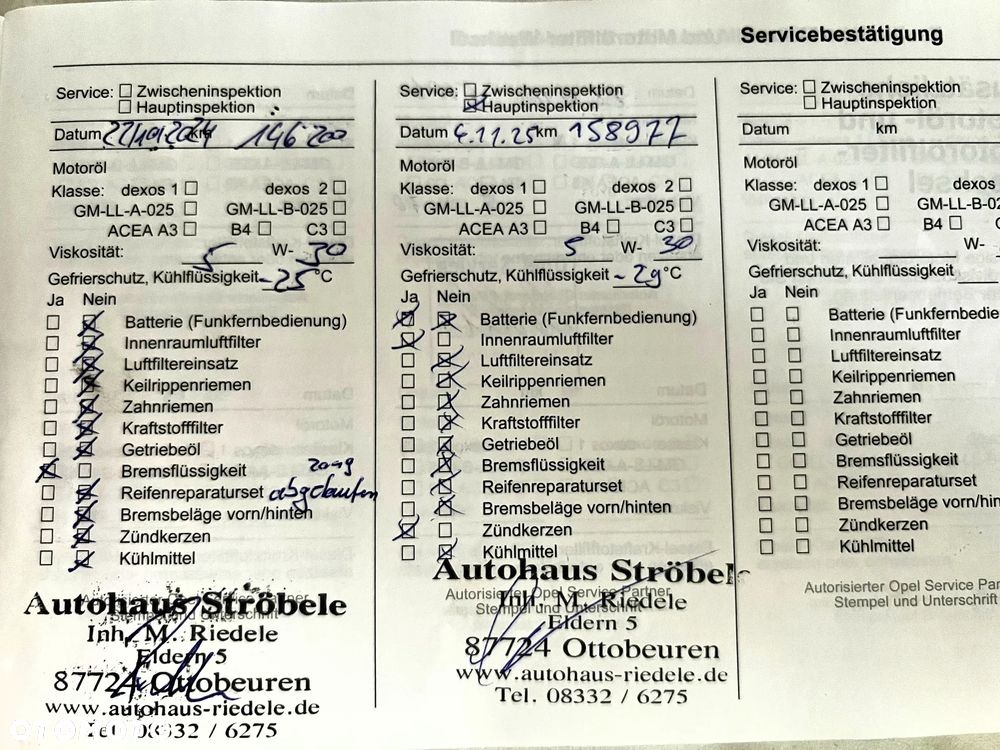 Servicebestätigung
Service: Zwischeninspektion
Hauptinspektion
Datum km 146200
Motoröl
Klasse: dexos 1 dexos 2
GM-LL-A-025 GM-LL-B-025
ACEA A3 B4 C3
Viskosität: 5 W- 30
Gefrierschutz, Kühlflüssigkeit -25 °C
Ja Nein
Batterie (Funkfernbedienung)
Innenraumluftfilter
Luftfiltereinsatz
Keilrippenriemen
Zahnriemen
Kraftstofffilter
Getriebeöl
Bremsflüssigkeit 2019
Reifenreparaturset abgelaufen
Bremsbeläge vorn/hinten
Zündkerzen
Kühlmittel
Autorisierter Opel Service Partner
Stempel und Unterschrift
Autohaus Ströbele
Inh. M. Riedele
Eldern 5
87724 Ottobeuren
www.autohaus-riedele.de
Tel. 08332 / 6275
Service: Zwischeninspektion
Hauptinspektion
Datum 4.11.25 km 158977
Motoröl
Klasse: dexos 1 dexos 2
GM-LL-A-025 GM-LL-B-025
ACEA A3 B4 C3
Viskosität: 5 W- 30
Gefrierschutz, Kühlflüssigkeit - 29 °C
Ja Nein
Batterie (Funkfernbedienung)
Innenraumluftfilter
Luftfiltereinsatz
Keilrippenriemen
Zahnriemen
Kraftstofffilter
Getriebeöl
Bremsflüssigkeit
Reifenreparaturset
Bremsbeläge vorn/hinten
Zündkerzen
Kühlmittel
Autohaus Ströbele
Autorisierter Opel Service Partner
Stempel und Unterschrift
Inh. M. Riedele
Eldern 5
87724 Ottobeuren
www.autohaus-riedele.de
Tel. 08332 / 6275
Service: Zwischeninspektion
Hauptinspektion
Datum km
Motoröl
Klasse: dexos 1 dexos
GM-LL-A-025 GM-LL-B-02
ACEA A3 B4
Viskosität: W-
Gefrierschutz, Kühlflüssigkeit
Ja Nein
Batterie (Funkfernbedie
Innenraumluftfilter
Luftfiltereinsatz
Keilrippenriemen
Zahnriemen
Kraftstofffilter
Getriebeöl
Bremsflüssigkeit
Reifenreparaturset
Bremsbeläge vorn/hin
Zündkerzen
Kühlmittel
Autorisierter Opel Service Par
Stempel und Unterschrift